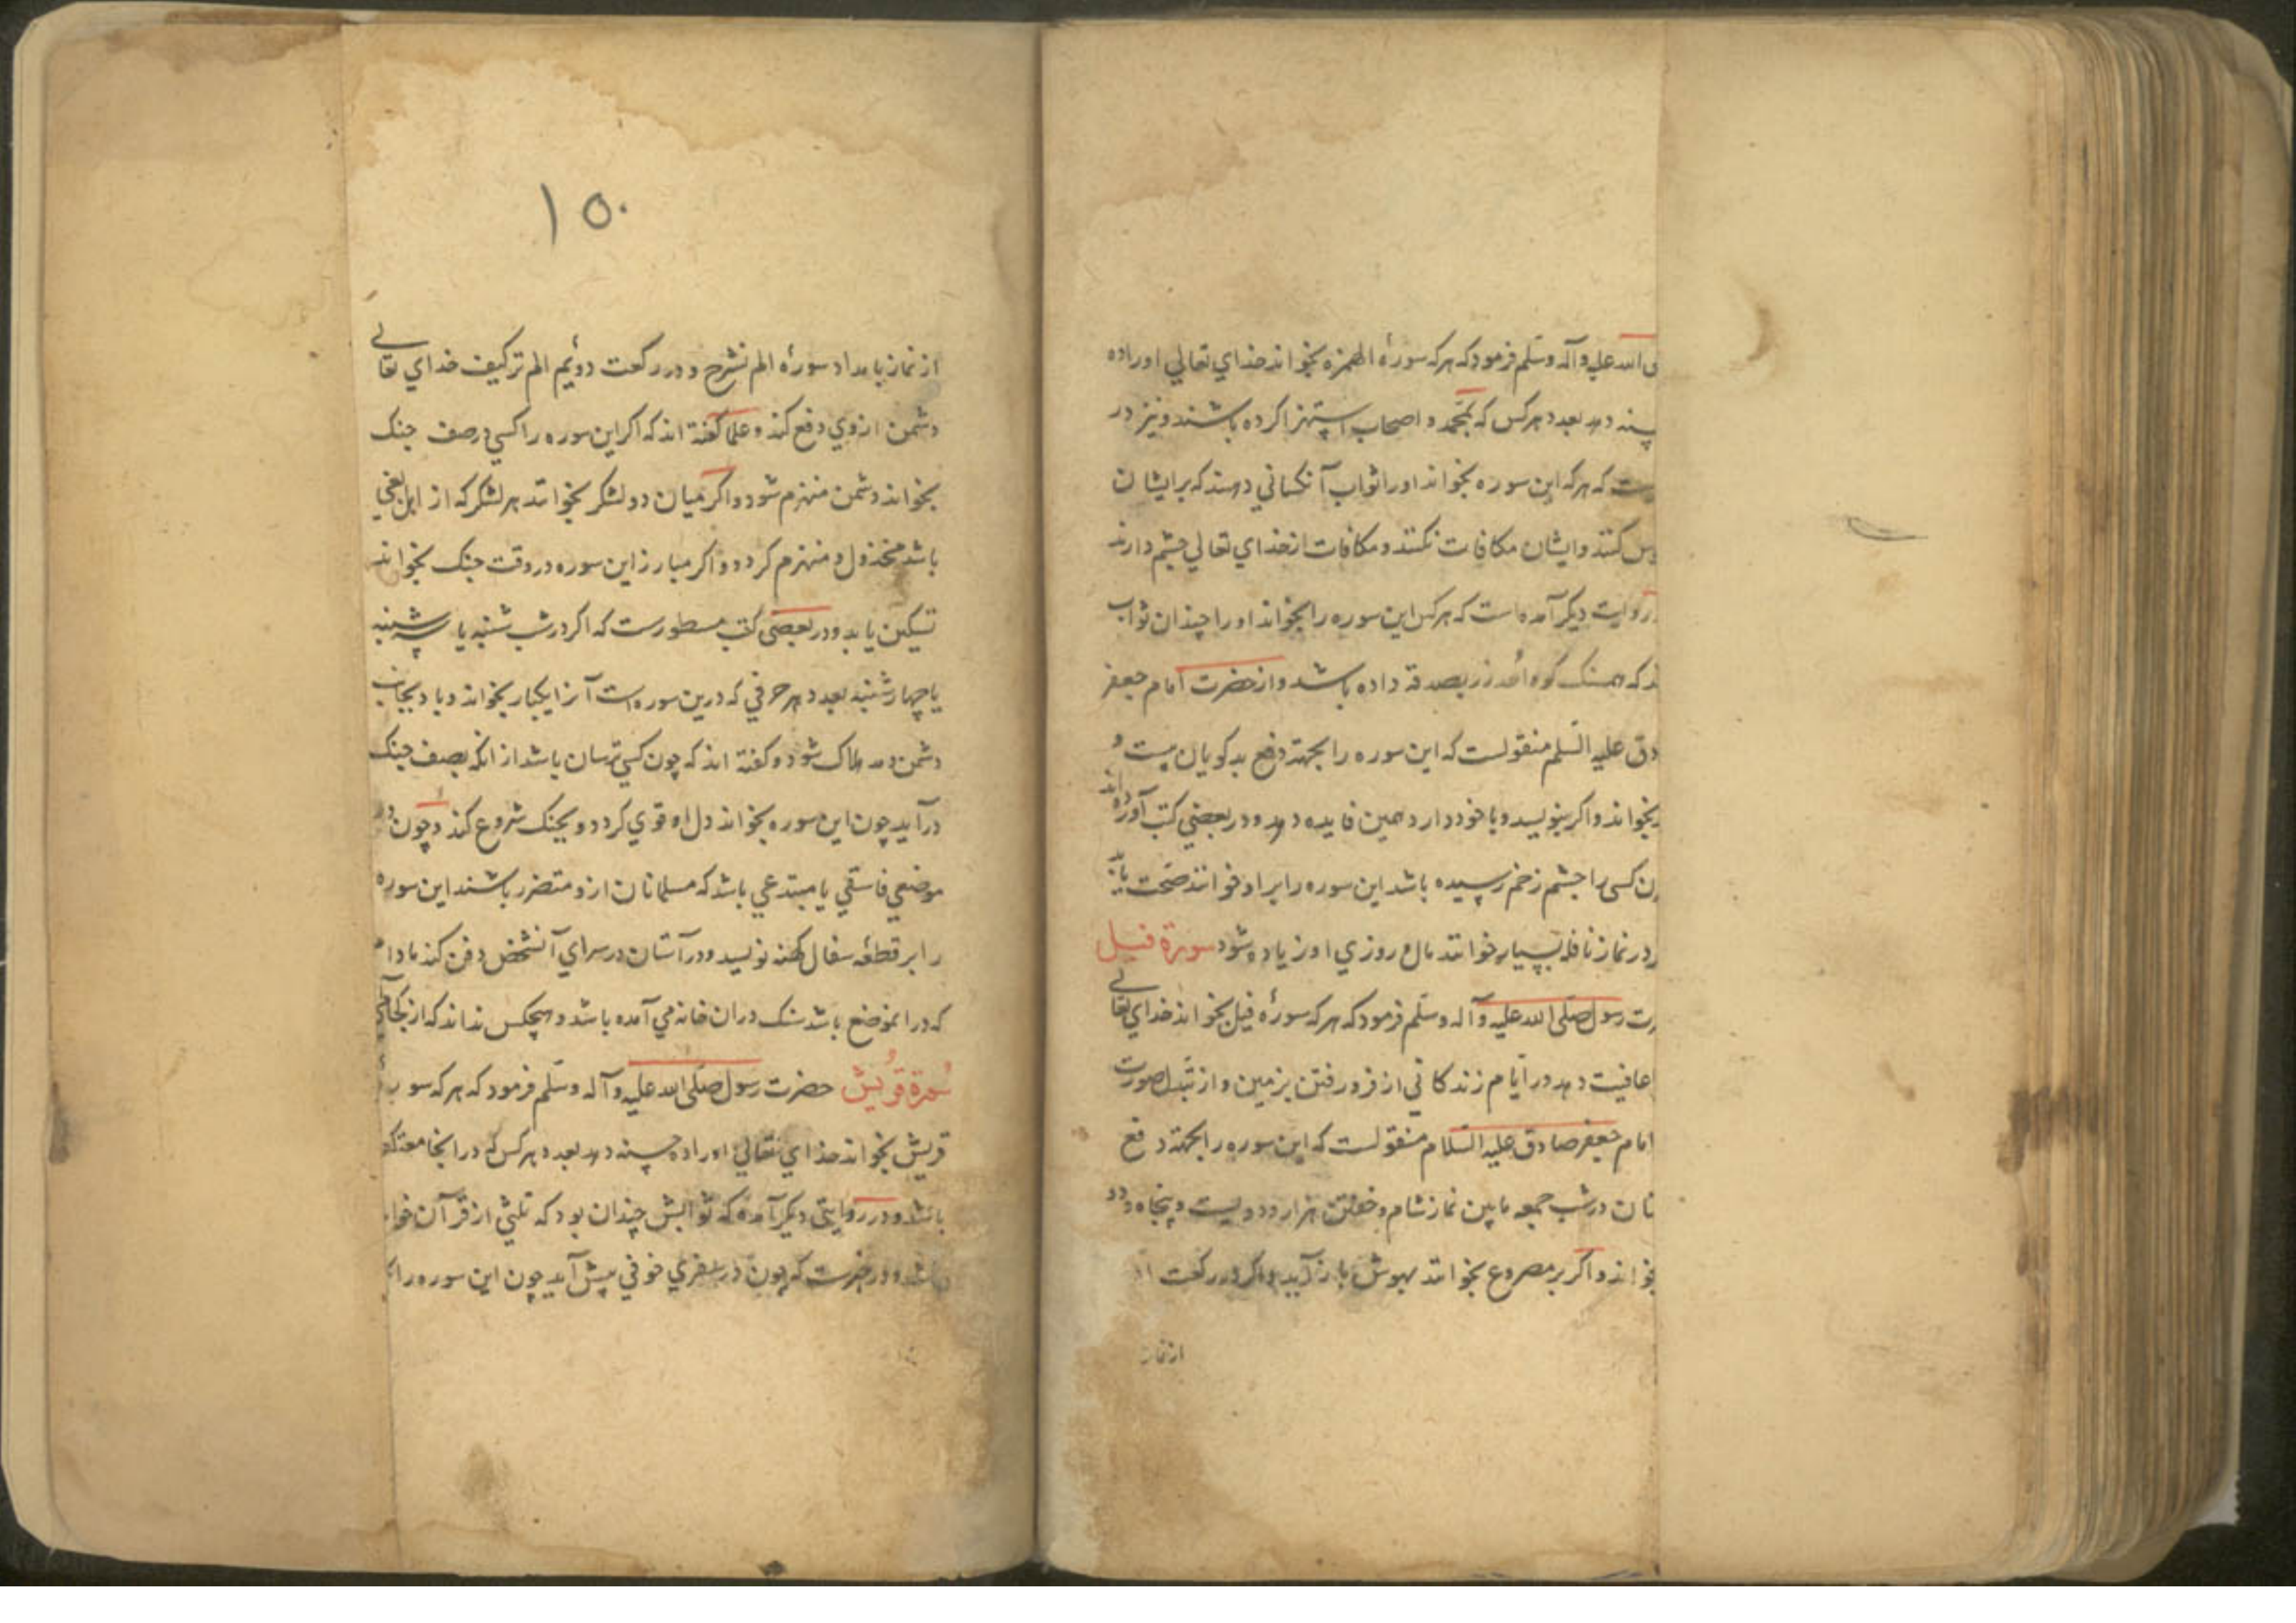 الله عليه وآله وسلم فرمود که هر که سورهٔ الهمزه بخواند خداي تعالي او را ده
دهد بعدد هر کس که بمحمد و اصحاب استهزا کرده باشند و نیز در
که هر که این سوره بخواند او را ثواب آنکساني دهند که بر ایشان
کنند و ایشان مکافات نکنند و مکافات از خداي تعالي چشم دارند
روایت دیکر آمده است که هر کس این سوره را بخواند او را چندان ثواب
که همسنک کوه احد زر بصدقه داده باشد و از حضرت امام جعفر
علیه السلم منقولست که این سوره را بجهة دفع بدکویان بیست و
بخواند و اکر بنویسد و با خود دارد همین فایده دهد و در بعضي کتب آورده اند
کسی را چشم زخم رسیده باشد این سوره را بر او خوانند صحت یابد
در نماز نافله بسیار خوانند مال و روزي او زیاده شود سورة فیل
رسول صلی الله علیه وآله وسلم فرمود که هر که سورهٔ فیل بخواند خداي تعالے
عافیت دهد در ایام زندکاني از فرو رفتن بزمین و از تبدل صورت
امام جعفر صادق علیه السلام منقولست که این سوره را بجهة دفع
در شب جمعه مابین نماز شام و خفتن هزار و دویست و پنجاه و دو
و اکر بر مصروع بخوانند بهوش باز آید و اکر در رکعت
از نماز
۱۵۰
از نماز بامداد سورهٔ الم نشرح و در رکعت دوئیم الم تر کیف خداي تعالے
دشمن از وي دفع کند و علما کفته اند که اکر این سوره را کسي در صف جنک
بخواند دشمن منهزم شود و اکر میان دو لشکر بخوانند هر لشکر که از اهل بغي
باشد مخذول و منهزم کردد و اکر مبارز این سوره در وقت جنک بخواند
تسکین یابد و در بعضی کتب مسطورست که اکر در شب شنبه یا سه شنبه
یا چهارشنبه بعدد هر حرفي که درین سوره است آنرا یکبار بخواند و باد بجانب
دشمن دمد هلاک شود و کفته اند که چون کسي ترسان باشد از انکه بصف جنک
درآید چون این سوره بخواند دل او قوي کردد و بجنک شروع کند و چون در
موضعي فاسقي یا مبتدعي باشد که مسلمانان ازو متضرر باشند این سوره
را بر قطعهٔ سفال کهنه نویسد و در آستان در سراي آنشخص دفن کند مادام
که در انموضع باشد سنک دران خانه مي آمده باشد و هیچکس نداند که از کجا
سورة قریش حضرت رسول صلی الله علیه وآله وسلم فرمود که هر که سوره
قریش بخواند خداي تعالي او را ده حسنه دهد بعدد هر کس که در انجا معتکف
باشد و در روایتی دیکر آمده که ثوابش چندان بود که ثلثي از قرآن خوانده
باشد و در خبرست که چون در سفري خوفي پیش آید چون این سوره را